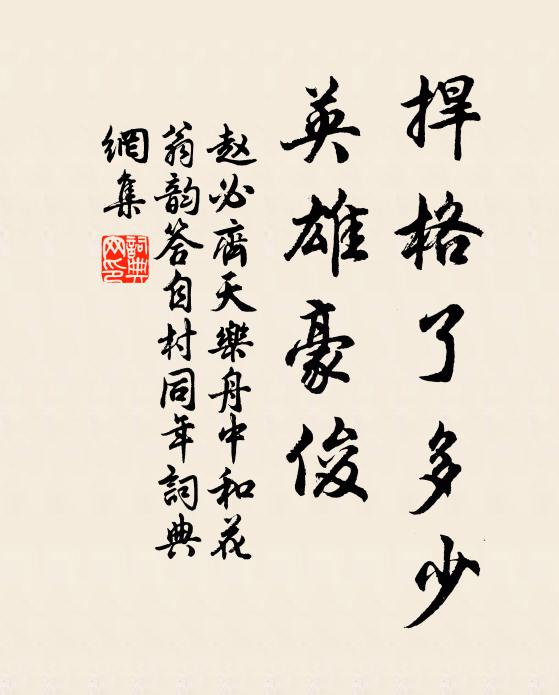 捍格了多少
英雄豪俊
赵必齊天樂舟中和花
翁韵答自村同年詞典
網集
詞典网印